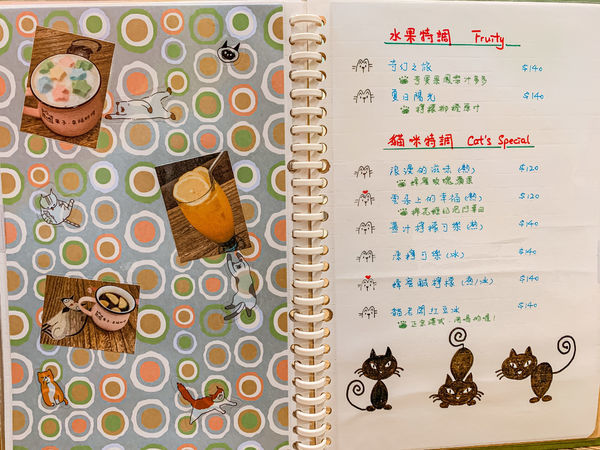 水果特調 Fruity
奇幻之旅 $140
奇異果鳳梨汁多多
夏日陽光 $140
檸檬柳橙原汁
貓咪特調 Cat's Special
浪漫的滋味(熱) $120
蜂蜜玫瑰蘋果
雲朵上的幸福(熱) $120
棉花糖巧克力
薑汁檸檬可樂(熱) $140
漂檸可樂(冰) $140
蜂蜜鹹檸檬(熱/冰) $140
貓老闆紅豆冰 $140
正宗港式,